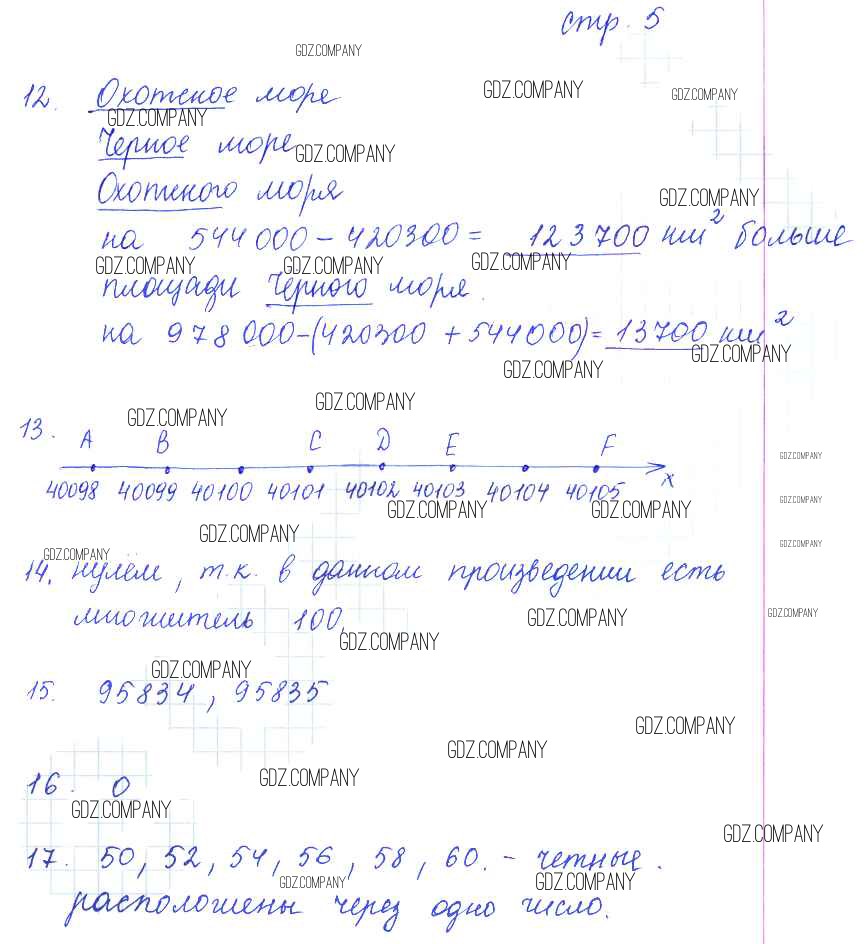 стр. 5
GDZ.COMPANY
12. Охотское море
GDZ.COMPANY GDZ.COMPANY
GDZ.COMPANY
Черное море
GDZ.COMPANY
Охотского моря
GDZ.COMPANY
на 544 000 - 420300 = 123 700 км² больше
GDZ.COMPANY GDZ.COMPANY GDZ.COMPANY
площади Черного моря.
на 978 000-(420300 + 544000)= 13700 км²
GDZ.COMPANY
GDZ.COMPANY
GDZ.COMPANY
GDZ.COMPANY
13. A B C D E F
GDZ.COMPANY
x
40098 40099 40100 40101 40102 40103 40104 40105
GDZ.COMPANY GDZ.COMPANY
GDZ.COMPANY
GDZ.COMPANY
GDZ.COMPANY
GDZ.COMPANY
14. нулём, т.к. в данном произведении есть
множитель 100.
GDZ.COMPANY GDZ.COMPANY
GDZ.COMPANY
GDZ.COMPANY
15. 95834, 95835
GDZ.COMPANY
GDZ.COMPANY
GDZ.COMPANY
16. 0
GDZ.COMPANY
GDZ.COMPANY
17. 50, 52, 54, 56, 58, 60. - четные.
GDZ.COMPANY GDZ.COMPANY
расположены через одно число.